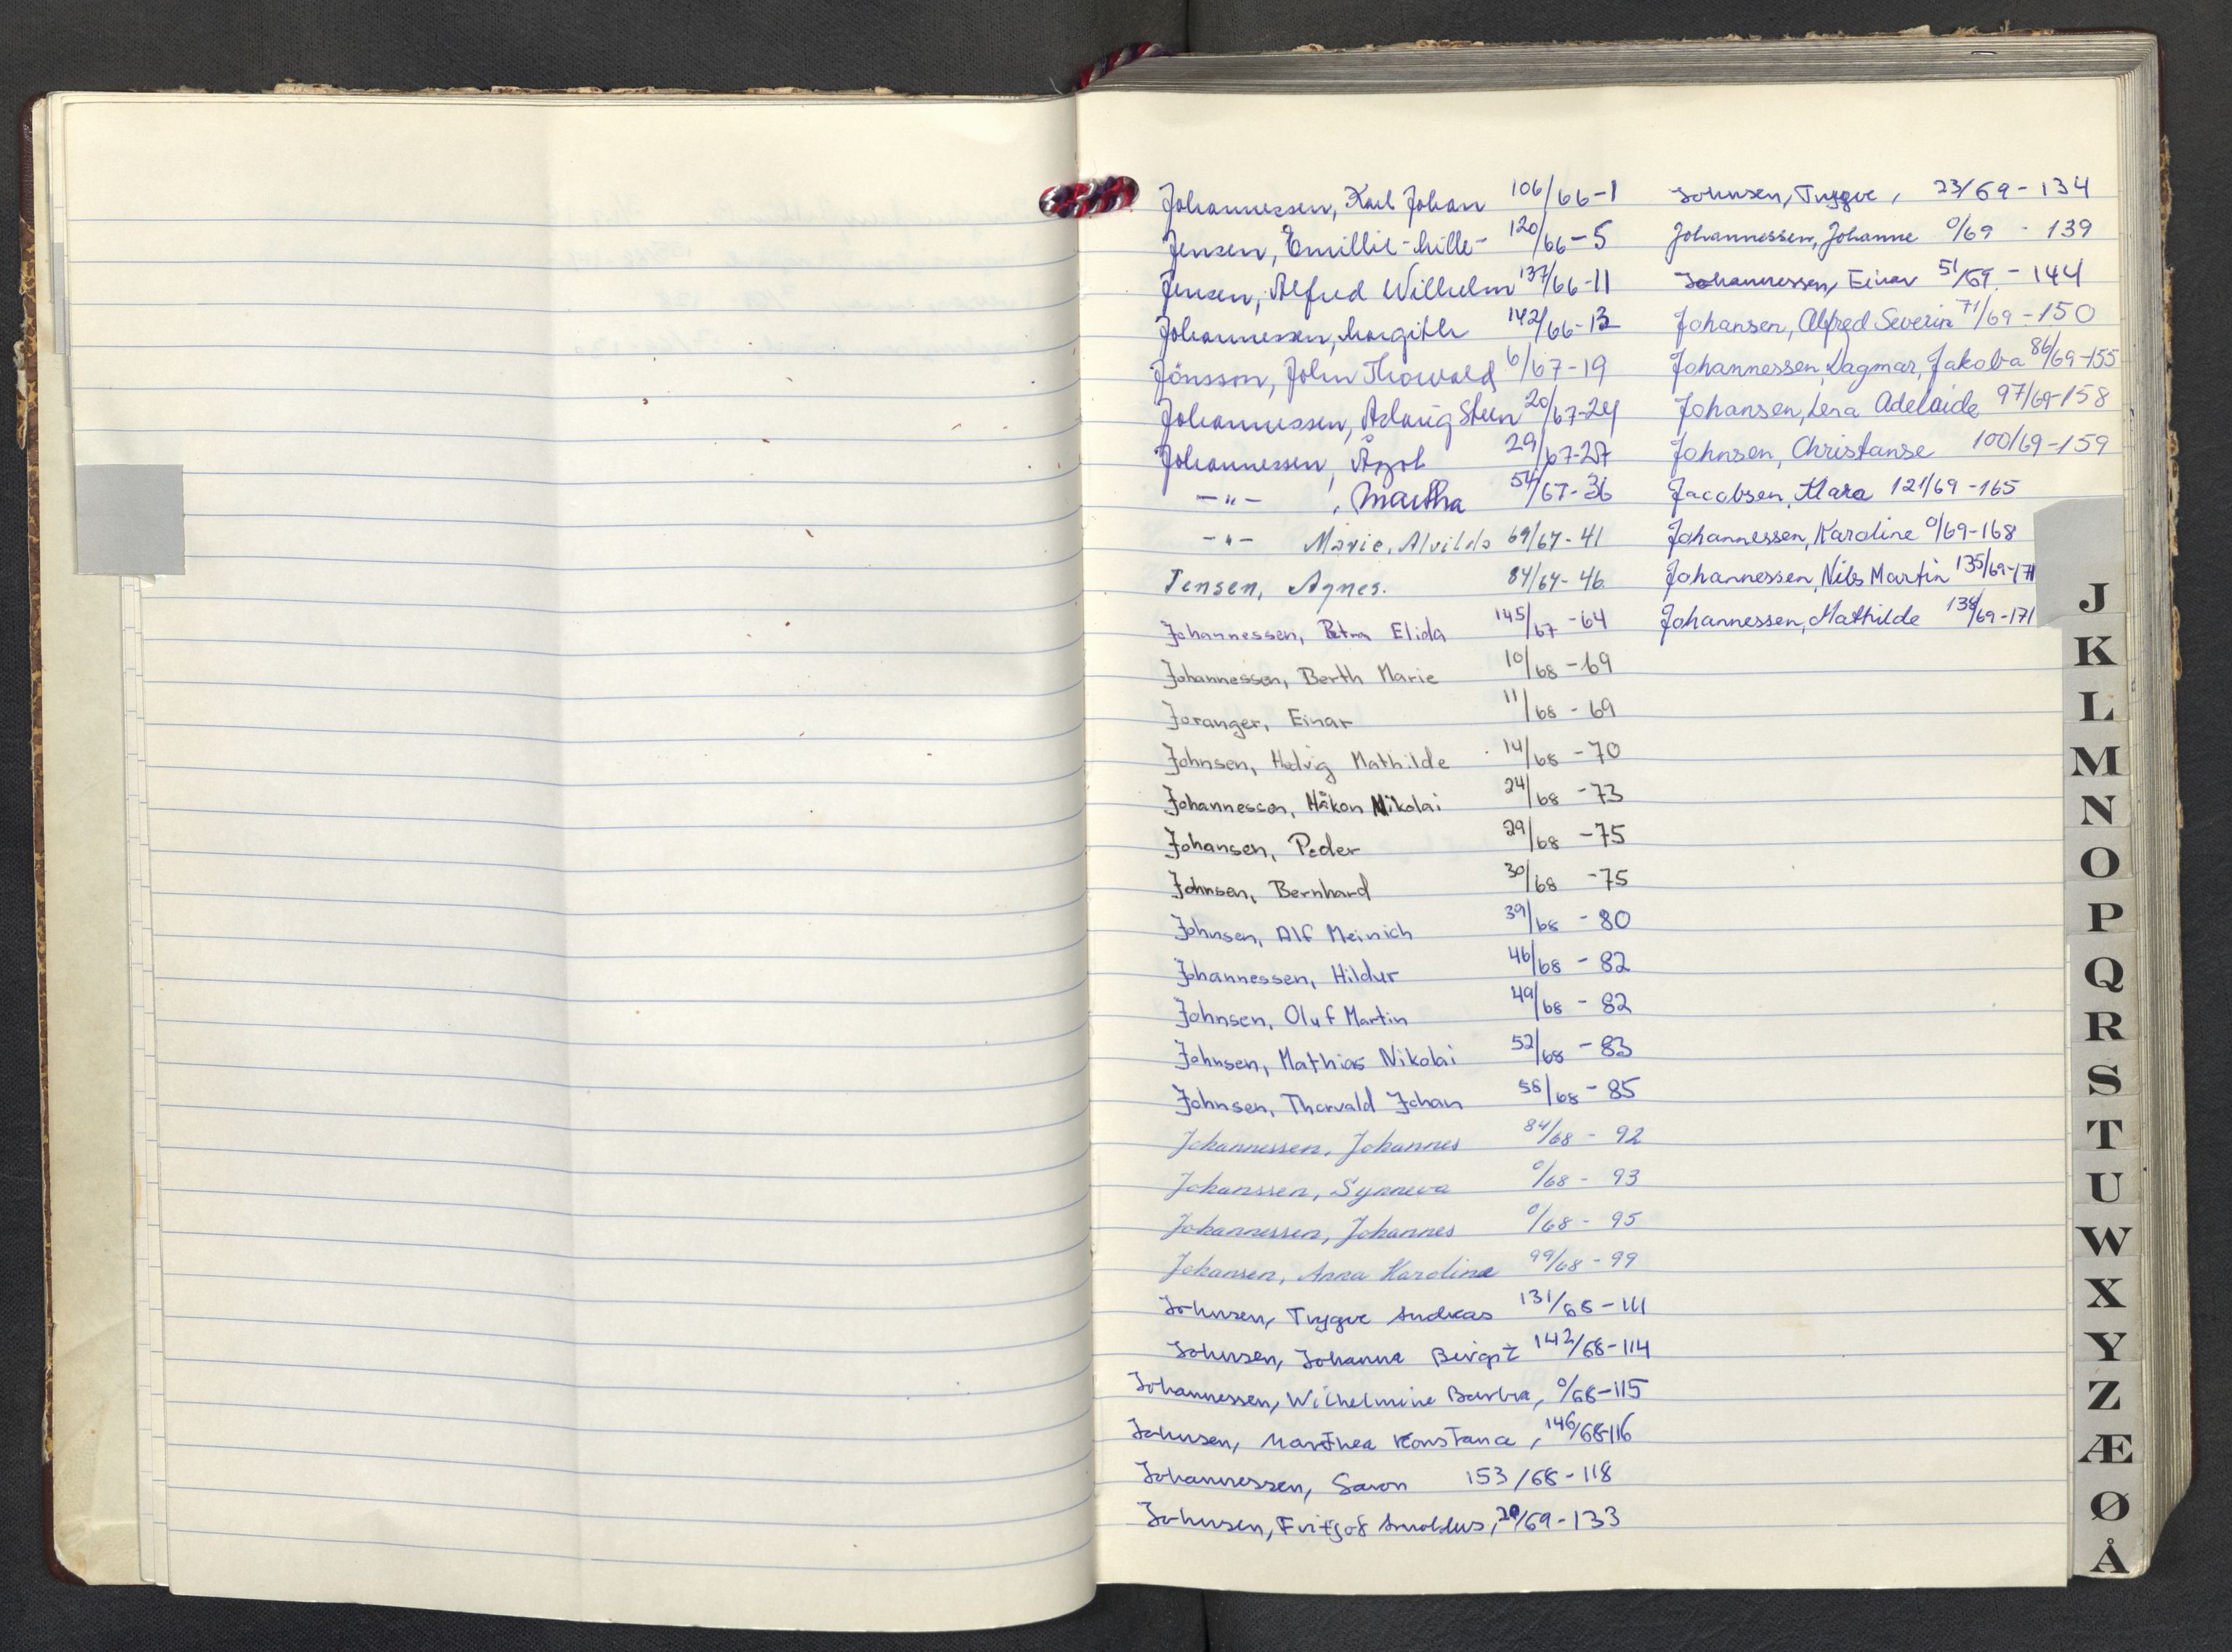 Johannessen, Karl Johan 106/66-1
Jensen, Emillie -Mille- 120/66-5
Jensen, Alfred Wilhelm 137/66-11
Johannessen, Margith 142/66-13
Jönsson, John Thorvald 6/67-19
Johannessen, Steen 20/67-24
Johannessen, Ågot 29/67-27
-"- , Martha 54/67-36
-"- Marie, Alvilda 69/67-41
Jensen, Agnes. 84/67-46
Johannessen, Petra Elida 145/67-64
Johannessen, Berth Marie 10/68-69
Joranger, Einar 11/68-69
Johnsen, Hedvig Mathilde 14/68-70
Johannessen, Håkon Nikolai 24/68-73
Johansen, Peder 29/68-75
Johnsen, Bernhard 30/68-75
Johnsen, Alf Meinich 39/68-80
Johannessen, Hildur 46/68-82
Johnsen, Oluf Martin 49/68-82
Johnsen, Mathias Nikolai 52/68-83
Johnsen, Thorvald Johan 58/68-85
Johannessen, Johannes 84/68-92
Johanssen, Synneva 0/68-93
Johannessen, Johannes 0/68-95
Johansen, Anna Karoline 99/68-99
Johnsen, Trygve Andreas 131/68-111
Johnsen, Johanna Birgit 142/68-114
Johannessen, Wilhelmine Barbra, 0/68-115
Johnsen, Marthea Konstance, 146/68-116
Johannessen, Savon 153/68-118
Johnsen, Fritjof Arnoldus, 20/69-133
Johnsen, Trygve, 23/69-134
Johannessen, Johanne 0/69-139
Johannessen, Einar 51/69-144
Johansen, Alfred Severin 71/69-150
Johannessen, Dagmar, Jakoba 86/69-155
Johansen, Lena Adelaide 97/69-158
Johnsen, Christanse 100/69-159
Jacobsen, Klara 121/69-165
Johannessen, Karoline 0/69-168
Johannessen, Nils Martin 135/69-171
Johannessen, Mathilde 138/69-171
J
K
L
M
N
O
P
Q
R
S
T
U
W
X
Y
Z
Æ
Ø
Å